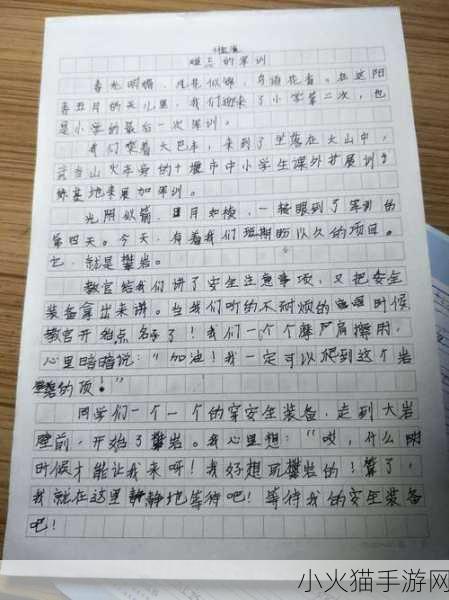 难忘的军训
春光明媚，繁花似锦，鸟语花香。在这阳
春五月的天儿里，我们迎来了小学第二次，也
是小学的最后一次军训。
我们乘着大巴车，来到了坐落在大山中，
武当山火车旁的十堰市中小学生课外扩展训
练基地来展加军训。
光阴似箭，日月如梭，一转眼到了军训的
第四天。今天，有着我们期盼以久的项目。
它，就是攀岩。
教官给我们讲了安全注意事项，又把安全
装备拿出来讲。当我们听的不耐烦的时候
教官开始点名了！我们一个个摩拳擦掌，
心里暗暗说：“加油！我一定可以爬到这个岩
的顶！”
同学们一个一个的穿安全装备，走到大岩
壁前，开始了攀岩。我心里想：“哎，什么
时候才能让我来呀！我好想玩攀岩的！算了，
我就在这里静静地等待吧！等待我的安全装备
吧！
小火猫手游网